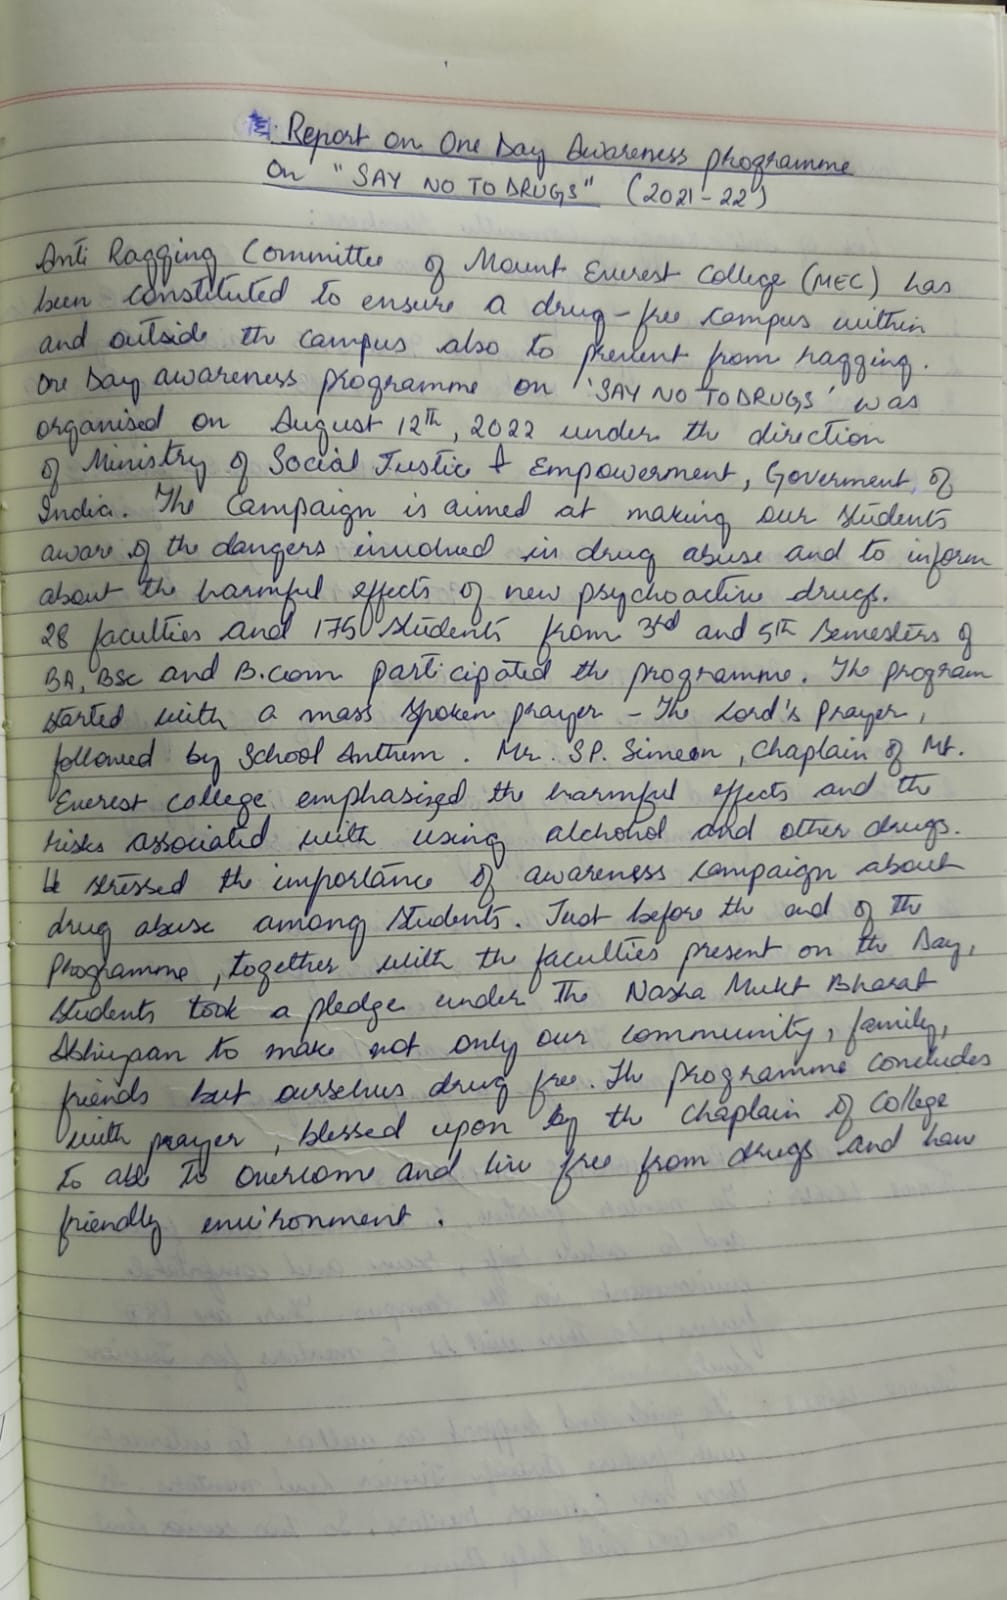 Report on One Day Awareness programme
On "SAY NO TO DRUGS" (2021-22)
Anti Ragging Committee of Mount Everest College (MEC) has
been constituted to ensure a drug-free campus within
and outside the campus also to prevent from ragging.
One Day awareness programme on 'SAY NO TO DRUGS' was
organised on August 12th, 2022 under the direction
of Ministry of Social Justice & Empowerment, Goverment, of
India. The Campaign is aimed at making our students
aware of the dangers involved in drug abuse and to inform
about the harmful effects of new psychoactive drugs.
28 faculties and 175 students from 3rd and 5th Semesters of
BA, BSc and B.com participated the programme. The program
started with a mass spoken prayer - The Lord's Prayer,
followed by School Anthem. Mr. SP. Simeon, Chaplain of Mt.
Everest college emphasized the harmful effects and the
risks associated with using alchohol and other drugs.
He stressed the importance of awareness campaign about
drug abuse among students. Just before the end of the
Programme, together with the faculties present on the Day,
students took a pledge under The Nasha Mukt Bharat
Abhiyaan to make not only our community, family,
friends but ourselves drug free. The programme concludes
with prayer, blessed upon by the Chaplain of College
to able to overcome and live free from drugs and have
friendly environment.